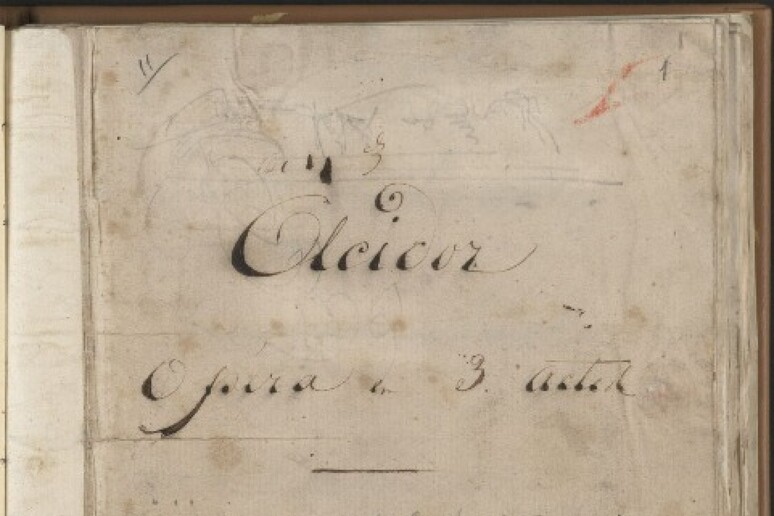 11 1
Alcidor
Opéra en 3. actes